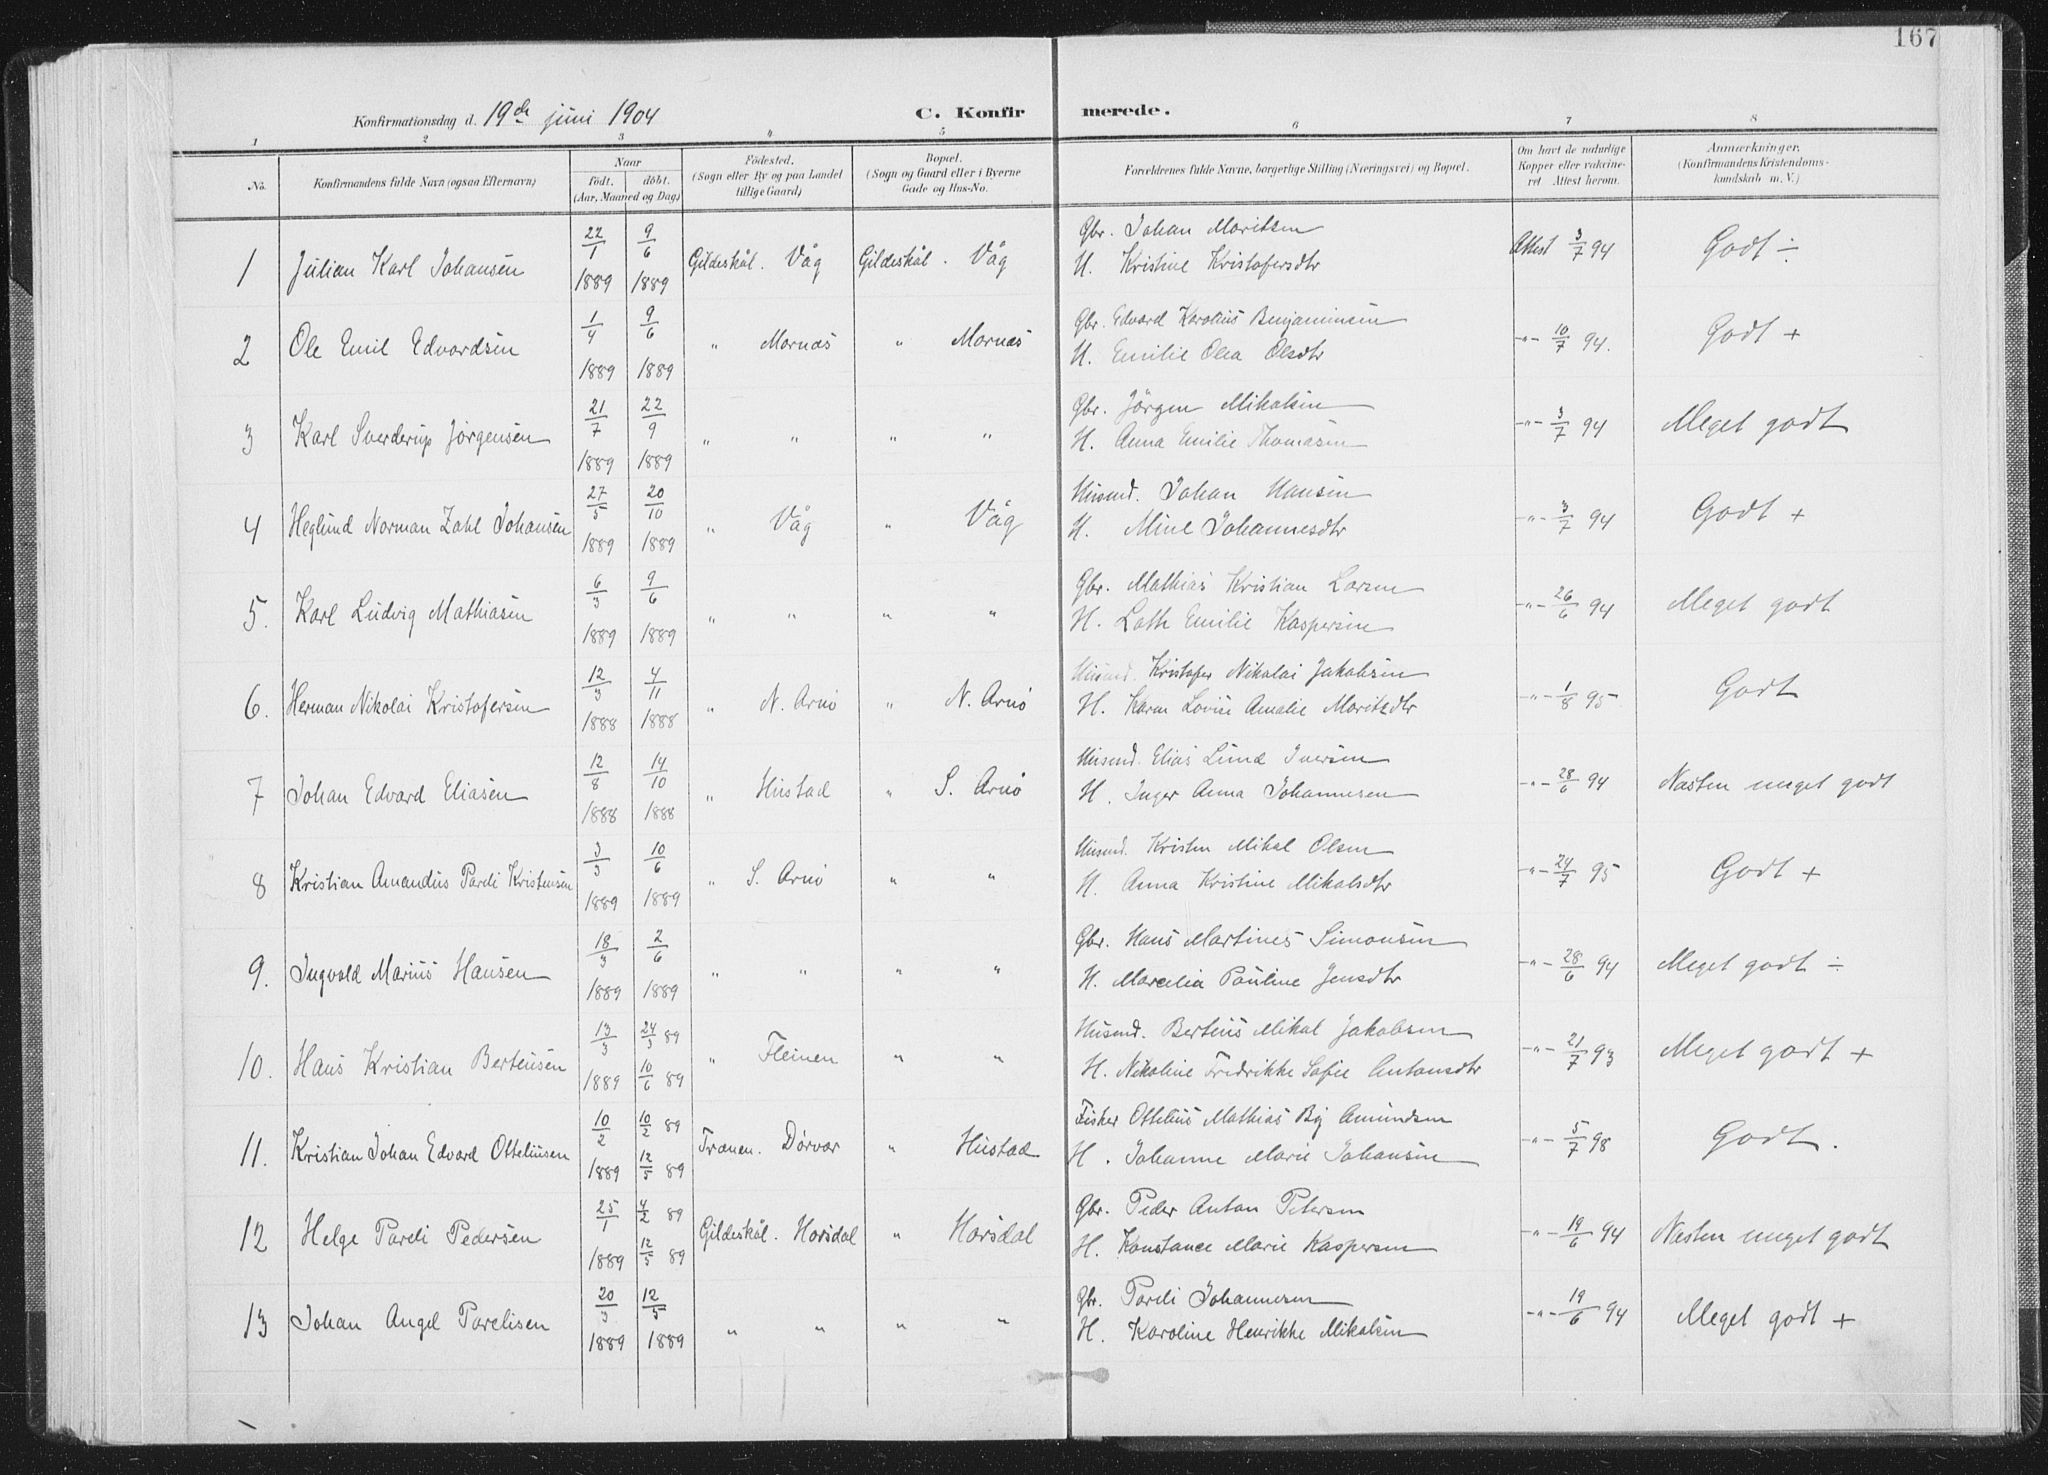 167
Konfirmationsdag d. 19de juni 1904 C. Konfirmerede.
1 2 3 " 5 6 7 8
No. Konfirmandens fulde Navn (ogsaa Efternavn) Naar født. døbt. (Aar, Maaned og Dag) Fødested. (Sogn eller By og paa Landet tillige Gaard) Bopæl. (Sogn og Gaard eller i Byerne Gade og Hus-No. Forældrenes fulde Navne, borgerlige Stilling (Næringsvei) og Bopæl. Om havt de naturlige Kopper eller vaccineret Attest herom. Anmærkninger. (Konfirmandens Kristendomskundskab m. V.)
1 Julian Karl Johansen 22/1 1889 9/6 1889 Gildeskål. Våg Gildeskål. Våg Gbr. Johan Moritsen Attest 3/7 94 Godt ÷
H. Kristine Kristofersdtr
2 Ole Emil Edvardsen 1/4 1889 9/6 1889 " Mornæs " Mornæs Gbr. Edvard Karolius Benjaminsen -"- 10/7 94. Godt +
H. Emilie Olea Olsdtr
3 Karl Sverderup Jørgensen 21/7 1889 22/9 1889 " " " " Gbr. Jørgen Mikalsen -"- 3/7 94 Meget godt
H. Anna Emilie Thomasen
4 Heglund Norman Zahl Johansen 27/5 1889 20/10 1889 " Våg " Våg Husmd. Johan Hansen -"- 3/7 94 Godt +
H. Mine Johannesdtr
5. Karl Ludvig Mathiasen 6/3 1889 9/6 1889 " " " " Gbr. Mathias Kristian Larsen -"- 26/6 94 Meget godt
H. Lath Emilie Kaspersen
6. Herman Nikolai Kristofersen 12/3 1888 4/11 1888 " N. Arnø " N. Arnø Husmd. Kristofer Nikolai Jakobsen -"- 1/8 95 Godt
H. Karen Lovise Amalie Moritsdtr
7 Johan Edvard Eliasen 12/8 1888 14/10 1888 " Hustad " S. Arnø Husmd. Elias Lund Iversen -"- 28/6 94 Næsten meget godt
H. Inger Anna Johannesen
8 Kristian Amandus Pareli Kristensen 3/3 1889 10/6 1889 " S. Arnø " " Husmd. Kristen Mikal Olsen -"- 24/7 95 Godt +
H. Anna Kristine Mikalsdtr
9. Ingvald Marius Hansen 18/3 1889 2/6 1889 " " " " Gbr. Hans Martines Simonsen -"- 28/6 94 Meget godt ÷
H. Marcelia Pauline Jensdtr
10. Hans Kristian Berteusen 13/3 1889 24/3 89 10/6 89 " Fleinen " " Husmd. Berteus Mikal Jakobsen -"- 21/7 93 Meget godt +
H. Nikoline Fredrikke Sofie Antonsdtr
11. Kristian Johan Edvard Otteliusen 10/2 1889 10/2 89 12/5 89 Trænen. Dørvær " Hustad Fisker Ottelius Mathias By Amundsen -"- 5/7 98 Godt.
H. Johanne Marie Johansen
12 Helge Pareli Pedersen 25/1 1889 4/2 89 12/5 89 Gildeskål. Horsdal " Horsdal Gbr. Peder Anton Petersen -"- 19/6 94 Næsten meget godt
H. Konstance Marie Kaspersen
13 Johan Angel Parelisen 20/3 1889 12/5 1889 " " " " Gbr. Pareli Johannesen -"- 19/6 94 Meget godt +
H. Karoline Henrikke Mikalsen